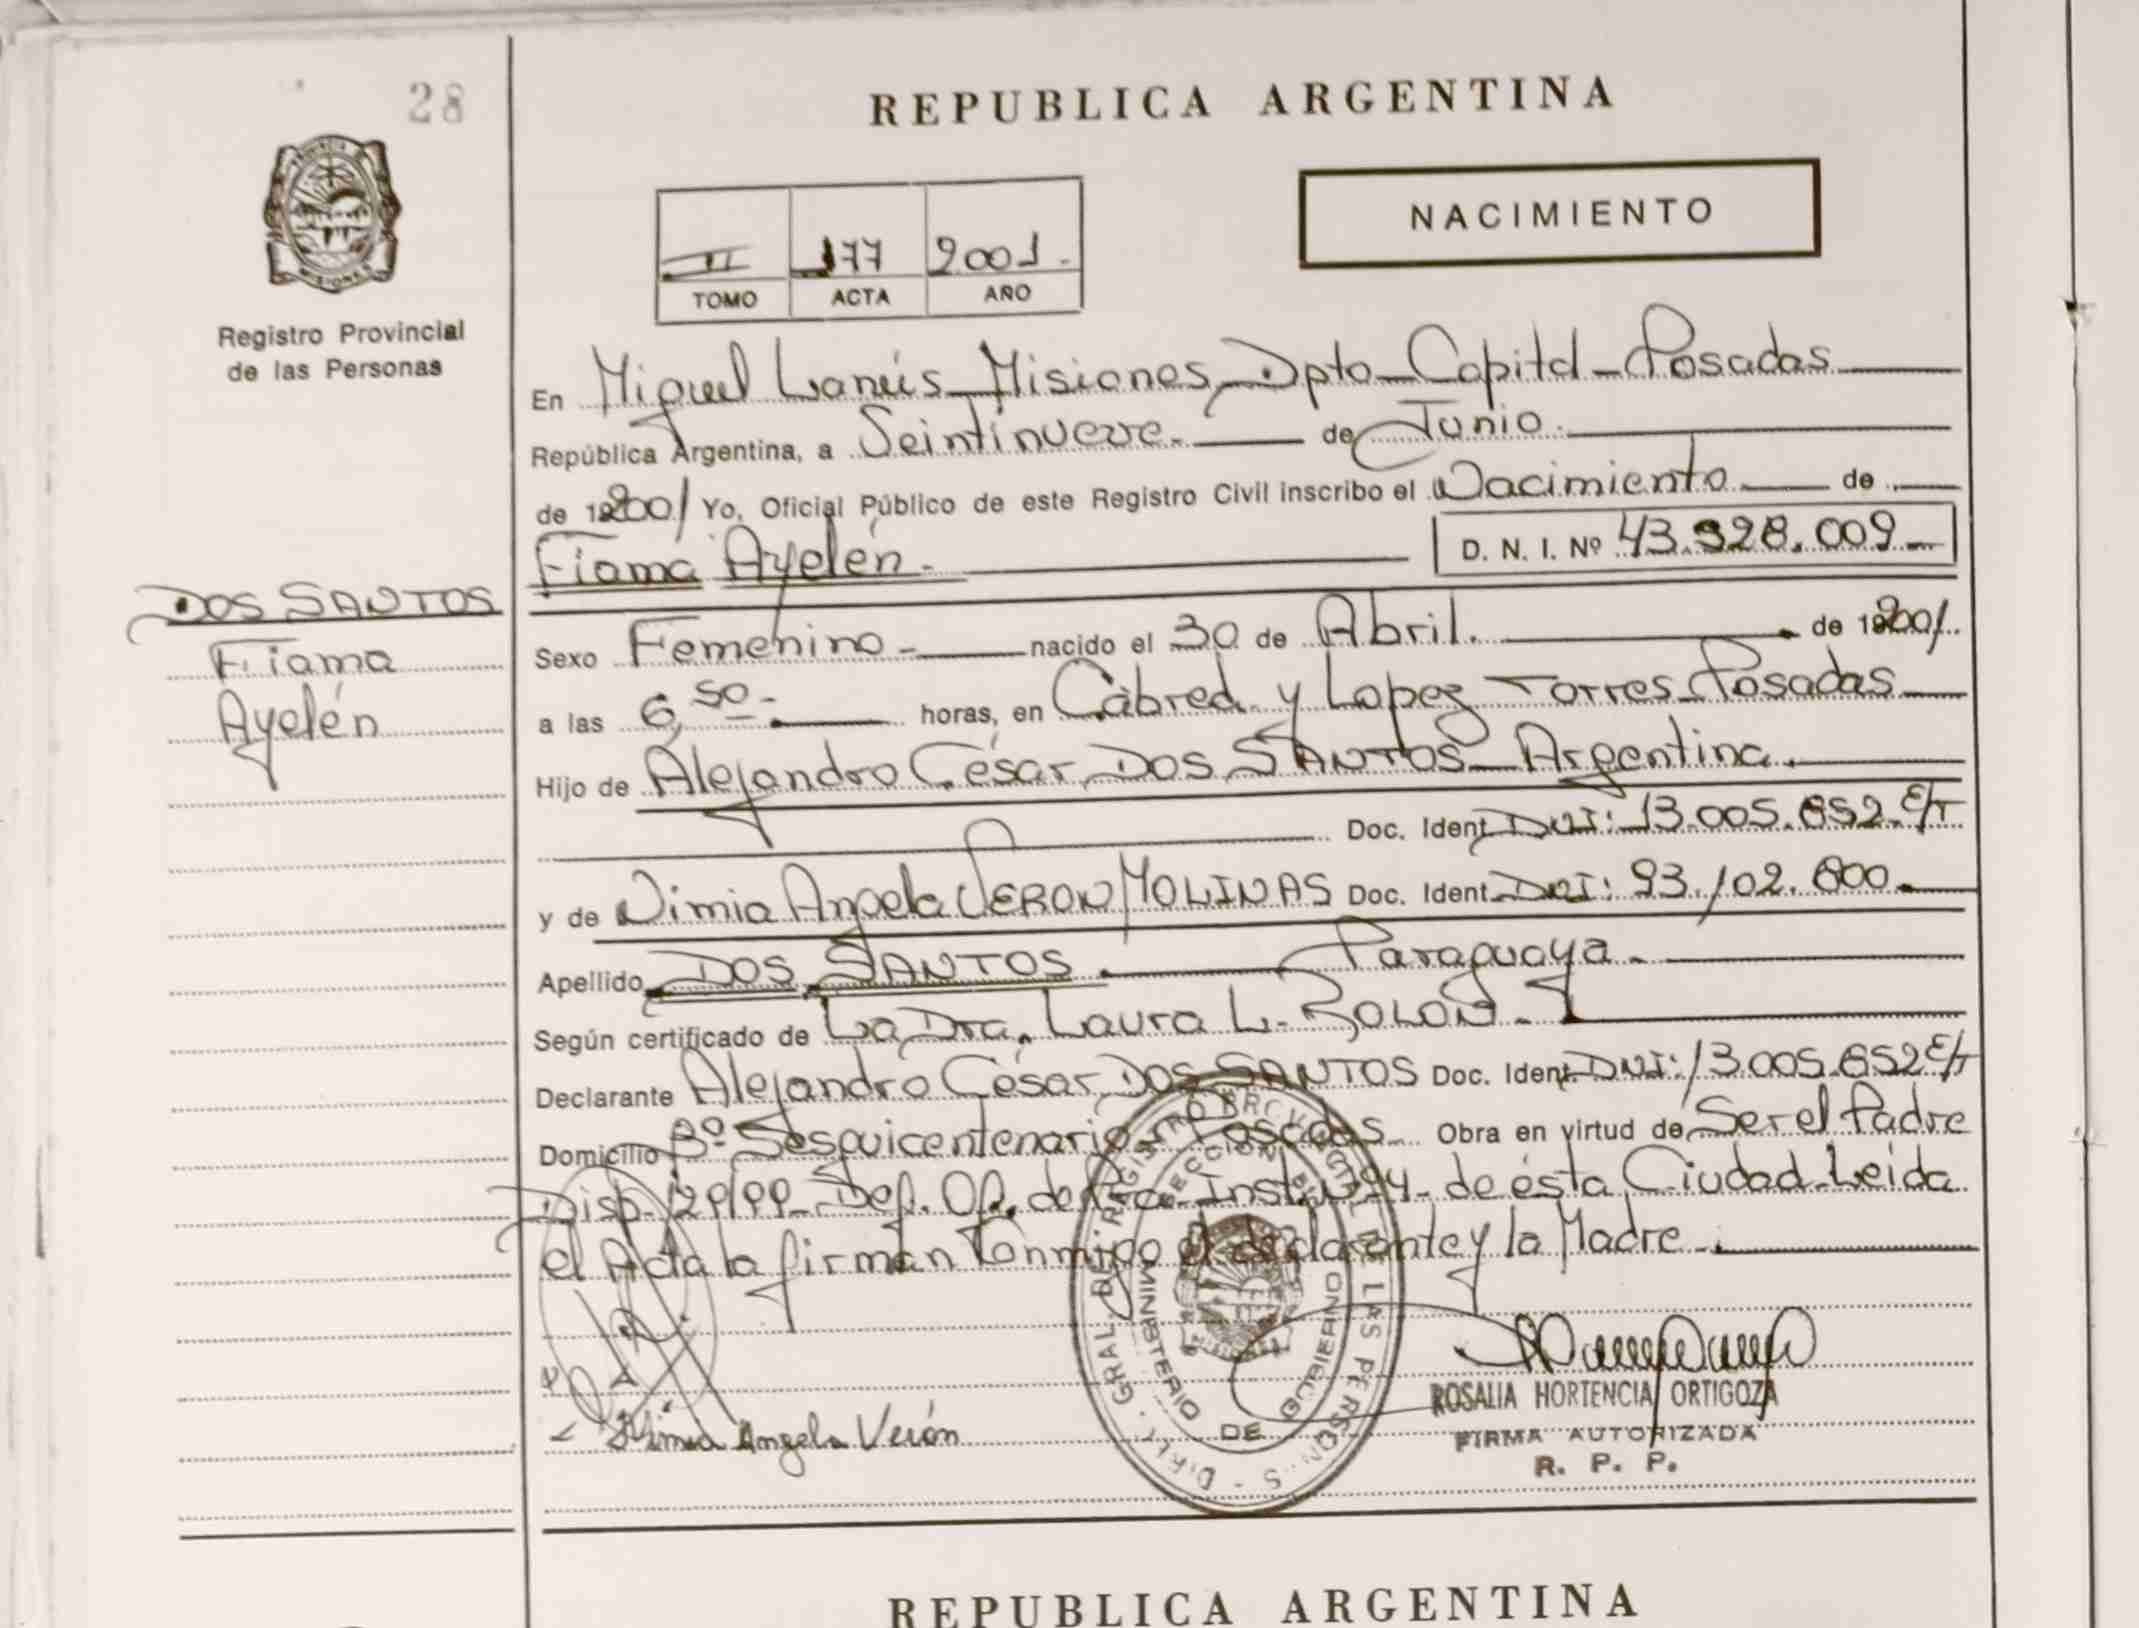 28
REPUBLICA ARGENTINA
NACIMIENTO
II 177 2001.
TOMO ACTA AÑO
PROVINCIA
MISIONES
Registro Provincial
de las Personas
En Miguel Lanús Misiones, Dpto Capital Posadas
República Argentina, a Veintinueve. de Junio.
de 2001 Yo, Oficial Público de este Registro Civil inscribo el Nacimiento de
Fiama Ayelén. D. N. I. Nº 43.328.009
DOS SANTOS
Fiama
Ayelén
Sexo Femenino nacido el 30 de Abril. de 2001.
a las 6,50 horas, en Cabred y Lopez Torres Posadas
Hijo de Alejandro César DOS SANTOS Argentina.
Doc. Ident. DNI: 13.005.852 E/T
y de Nimia Angela VERON MOLINAS Doc. Ident. DNI: 93.102.800.
Apellido DOS SANTOS. Paraguaya.
Según certificado de La Dra. Laura L. ROLON.
Declarante Alejandro César DOS SANTOS Doc. Ident. DNI: 13.005.852 E/T
Domicilio Bº Sesquicentenario Posadas Obra en virtud de Ser el Padre
Disp. 129/99 Def. Of. de Inst. Nº 4 de ésta Ciudad Leida
el Acta la firman conmigo el declarante y la Madre.
DIREC. GRAL. DEL REGISTRO PROVINCIAL DE LAS PERSONAS
MINISTERIO DE GOBIERNO
Nimia Angela Verón
ROSALIA HORTENCIA ORTIGOZA
FIRMA AUTORIZADA
R. P. P.
REPUBLICA ARGENTINA